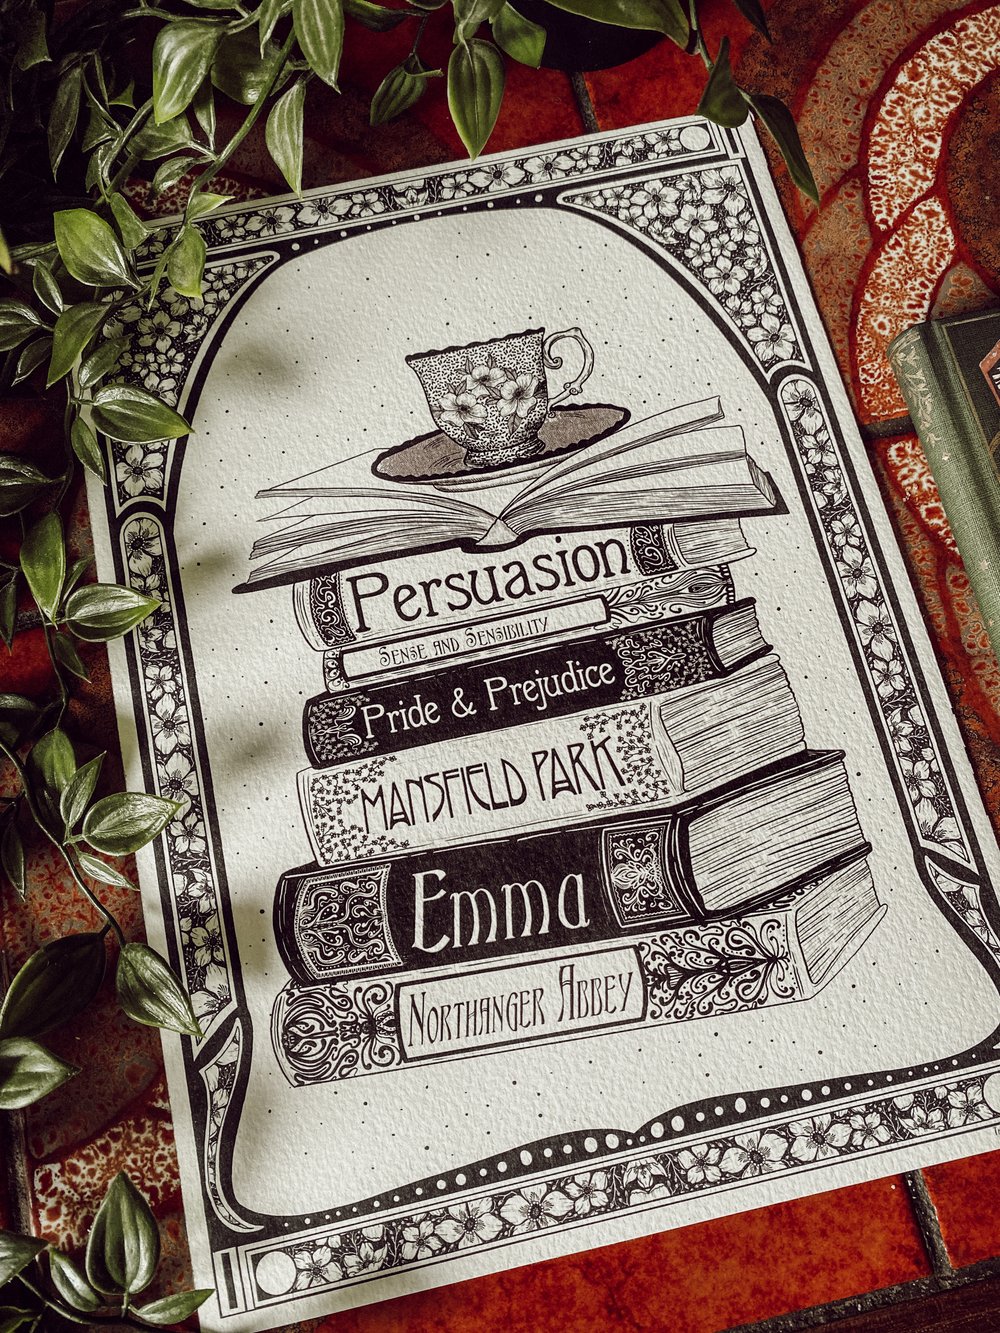 Persuasion
Sense and Sensibility
Pride & Prejudice
MANSFIELD PARK
Emma
Northanger Abbey